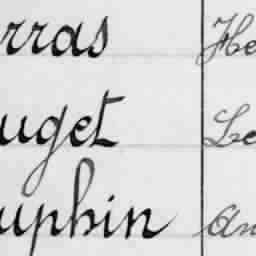 rras He
uget Le
uphin An